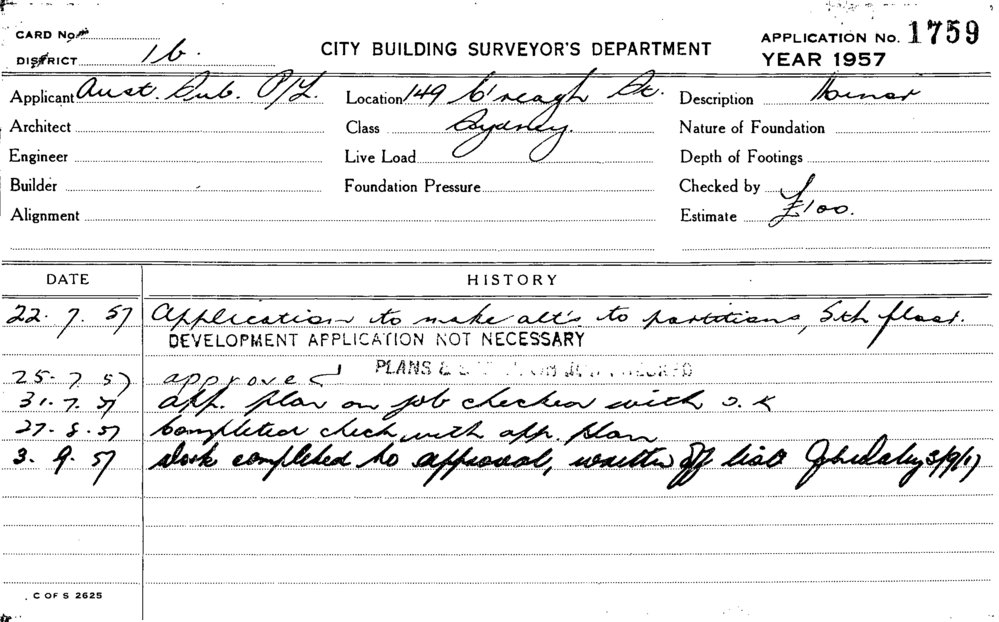 CARD No.
CITY BUILDING SURVEYOR'S DEPARTMENT
APPLICATION No. 1759
DISTRICT 1b.
YEAR 1957
Applicant Aust. Pub. P/L. Location 149 C'reagh St. Description Minor
Architect Class Sydney. Nature of Foundation
Engineer Live Load Depth of Footings
Builder Foundation Pressure Checked by
Alignment Estimate £100.
DATE HISTORY
22. 7. 57 Application to make alt's to partitions, 5th floor.
DEVELOPMENT APPLICATION NOT NECESSARY
PLANS &
25. 7. 57 approved
31. 7. 57 app. plan on job checked with O.K
27. 8. 57 Completed check with app. plan
3. 9. 57 Work completed to approval, written off list 3/9/57
C OF S 2625